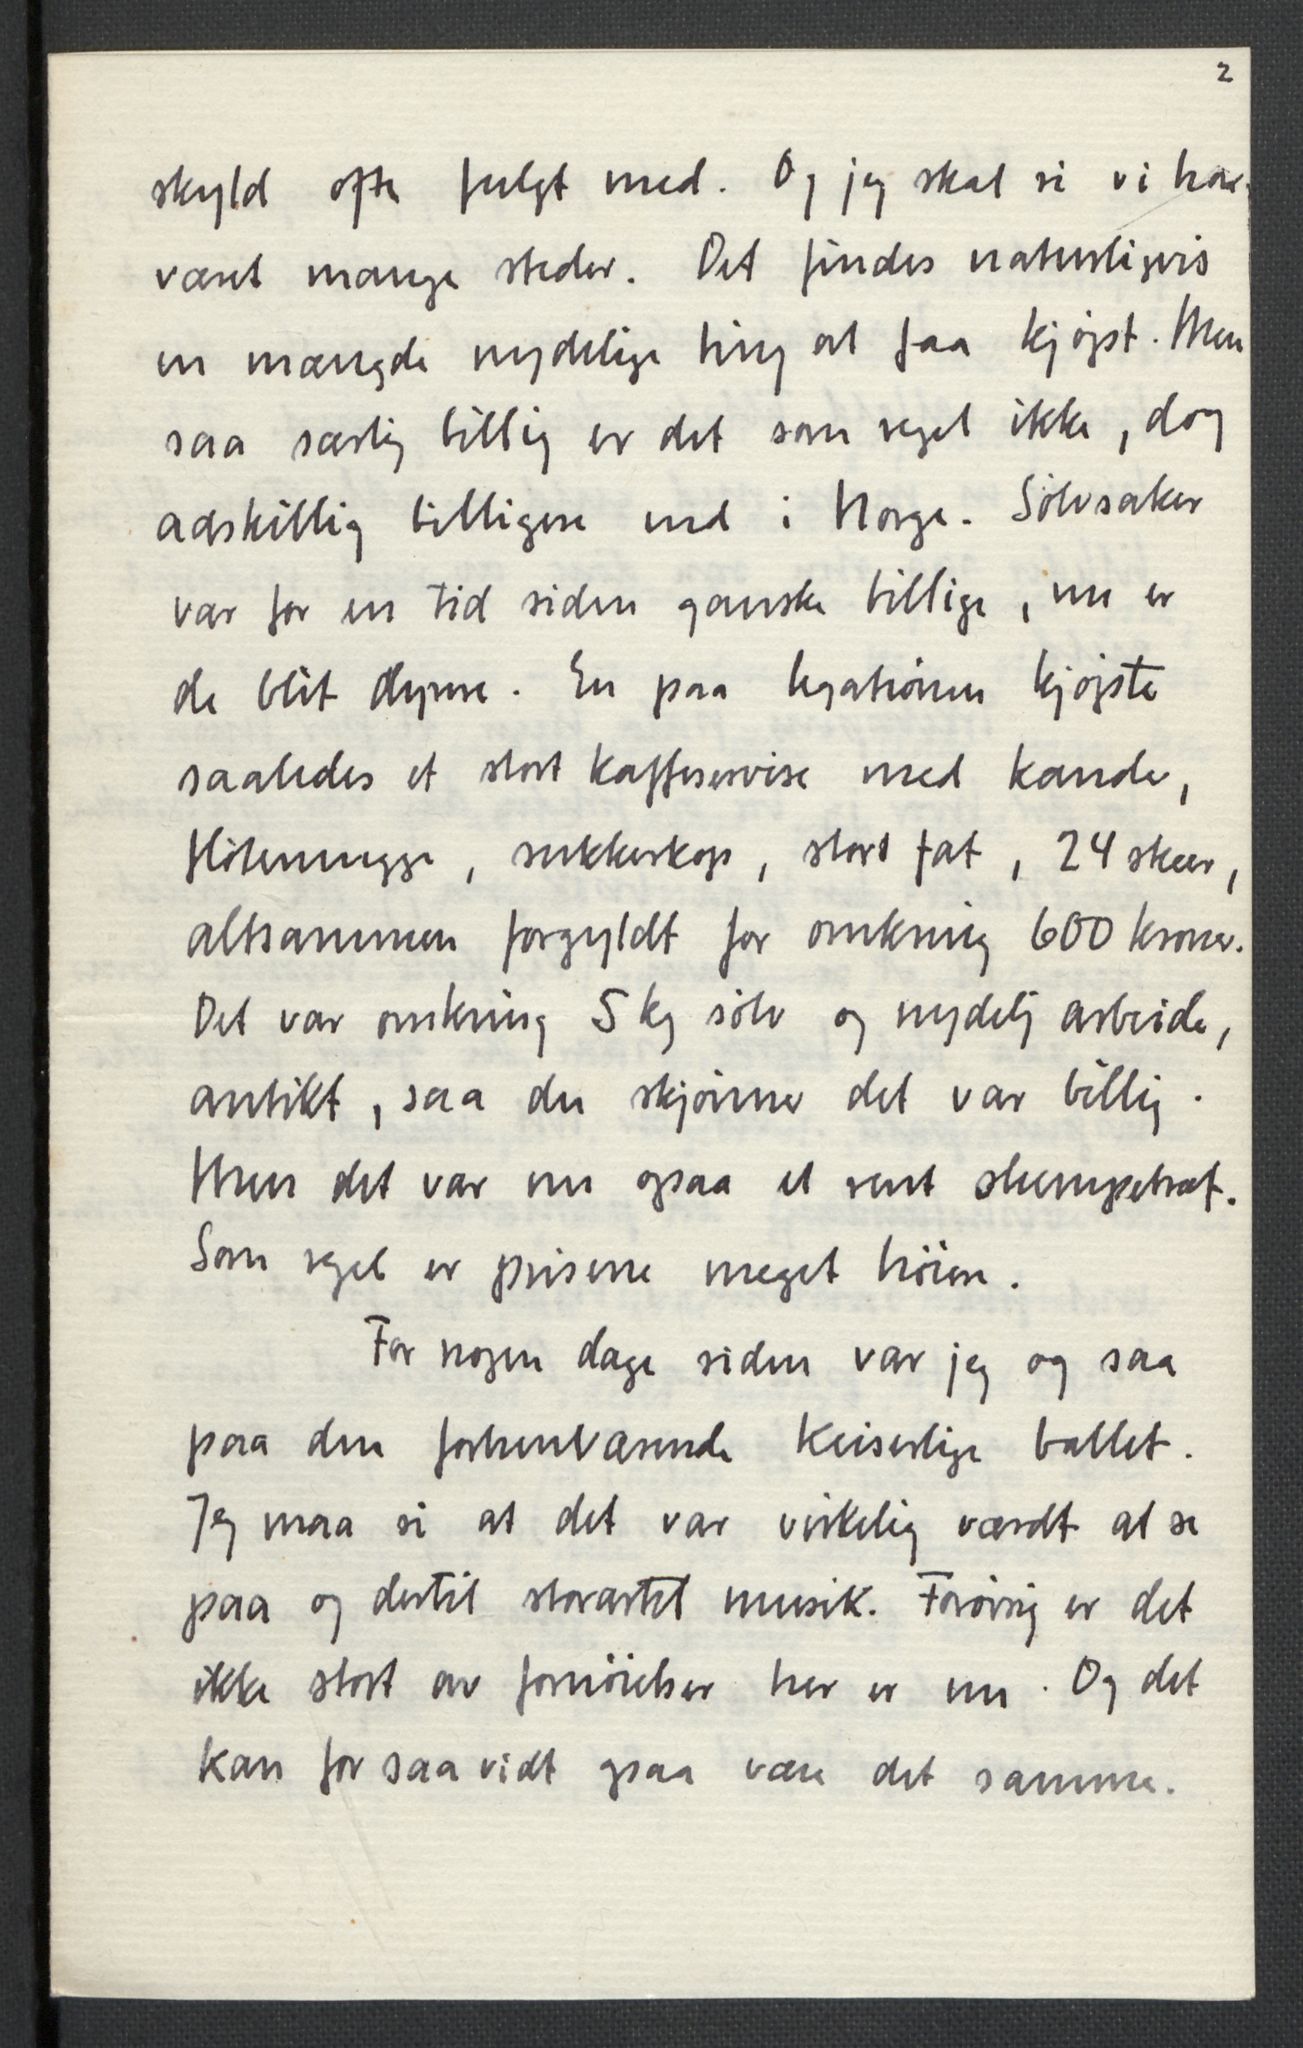 2
skyld ofte fulgt med. Og jeg skal si vi har
været mange steder. Det findes naturligvis
en mængde nydelige ting at faa kjøpt. Men
saa særlig billig er det som regel ikke, dog
adskillig billigere end i Norge. Sölvsaker
var for en tid siden ganske billige, nu er
de blit dyrere. En paa legationen kjøpte
saaledes et stort kaffeservise med kande,
flötemugge, sukkerkop, stort fat, 24 skeer,
altsammen forgyldt for omkring 600 kroner.
Det var omkring 5 kg sölv og nydelig arbeide,
antikt, saa du skjönner det var billig.
Men det var nu ogsaa et rent slumpetræf.
Som regel er prisene meget höiere.
For nogen dage siden var jeg og saa
paa den forhenværende Keiserlige ballet.
Jeg maa si at det var virkelig værdt at se
paa og dertil storartet musik. Forövrig er det
ikke stort av fornöielser her er nu. Og det
kan for saavidt ogsaa være det samme.